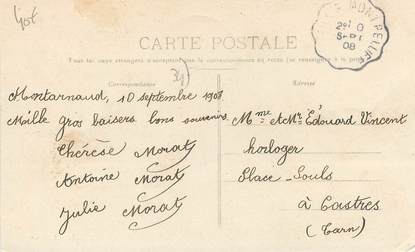 40f
CARTE POSTALE
Tous les pays étrangers n'acceptent pas la correspondance au recto (se renseigner à la poste)
34
Correspondance
Adresse
MONTPELLIER
SEPT
08
Montarnaud, 10 septembre 1908
Mille gros baisers bons souvenirs
Thérèse Morat
Antoine Morat
Julie Morat
Mme et Mr Édouard Vincent
horloger
Place Souls
à Castres
(Tarn)